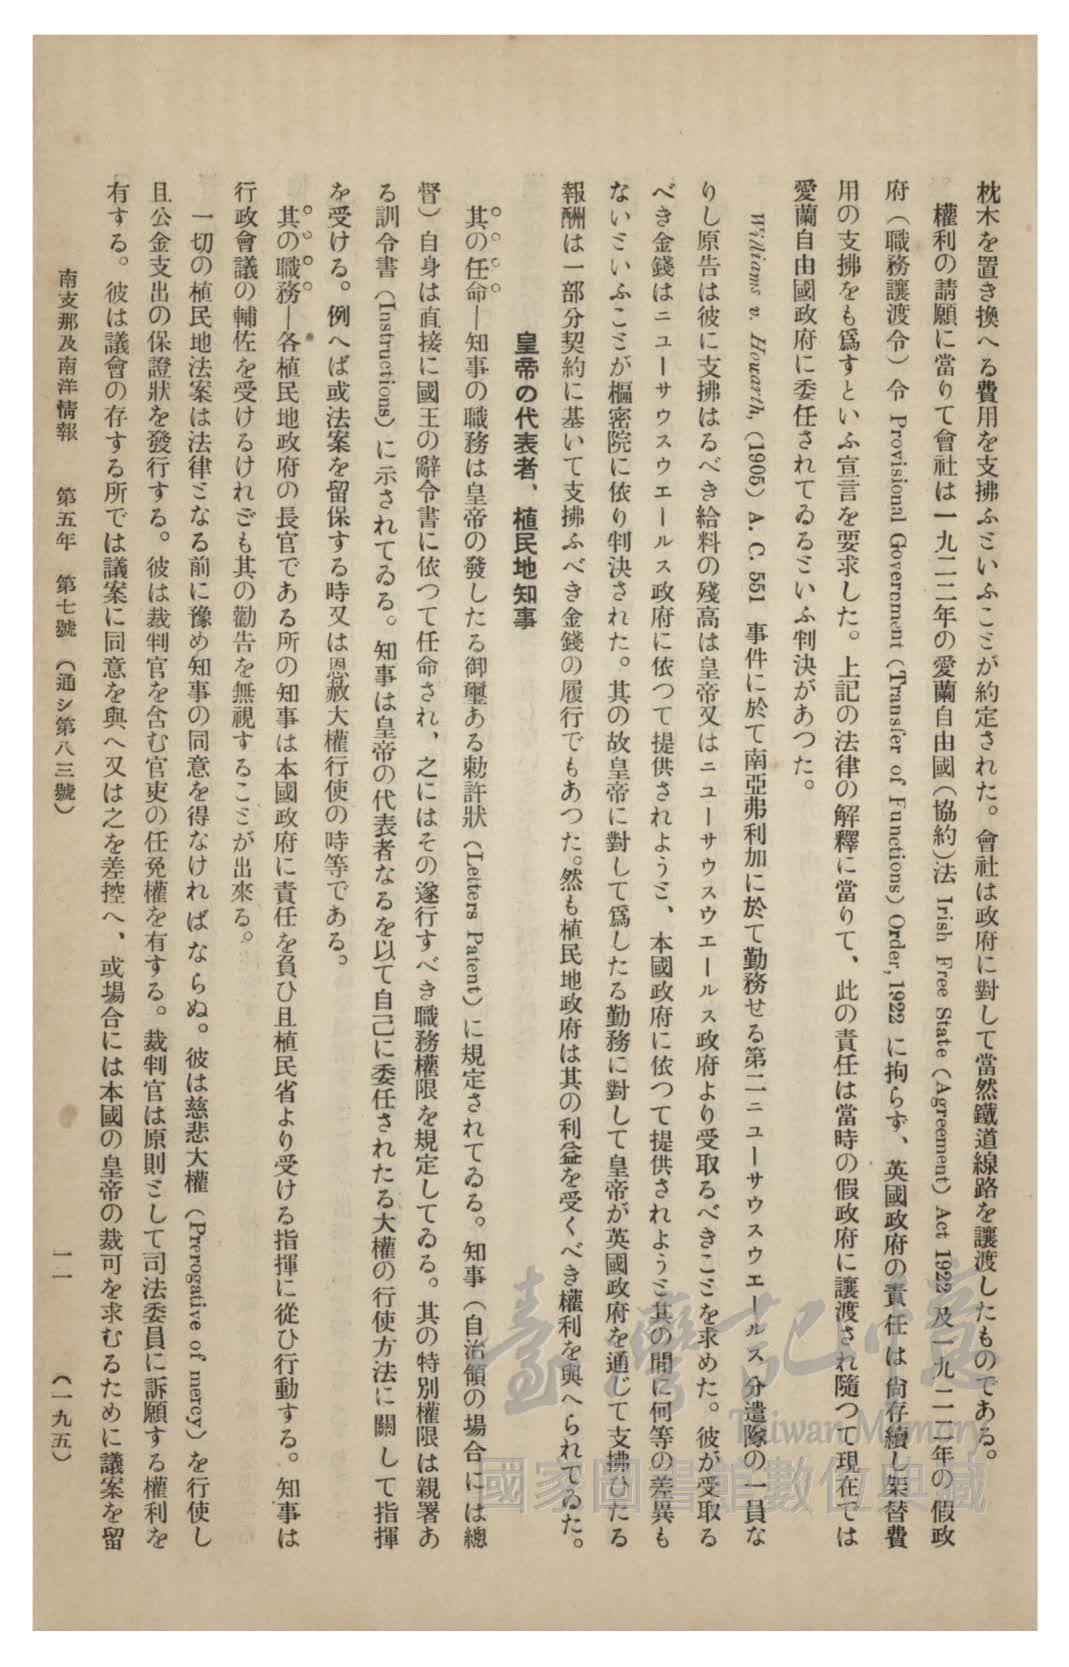 枕木を置き換へる費用を支拂ふといふことが約定された。會社は政府に對して當然鐵道線路を讓渡したものである。
權利の請願に當りて會社は一九二二年の愛蘭自由國（協約）法 Irish Free State (Agreement) Act 1922 及一九二二年の假政
府（職務讓渡令）令 Provisional Government (Transfer of Functions) Order, 1922 に拘らず、英國政府の責任は尙存續し架替費
用の支拂をも爲すといふ宣言を要求した。上記の法律の解釋に當りて、此の責任は當時の假政府に讓渡され隨つて現在では
愛蘭自由國政府に委任されてゐるといふ判決があつた。
Williams v. Howarth, (1905) A. C. 551 事件に於て南亞弗利加に於て勤務せる第二ニューサウスウエールス分遣隊の一員な
りし原告は彼に支拂はるべき給料の殘高は皇帝又はニューサウスウエールス政府より受取るべきことを求めた。彼が受取る
べき金錢はニューサウスウエールス政府に依つて提供されようと、本國政府に依つて提供されようと其の間に何等の差異も
ないといふことが樞密院に依り判決された。其の故皇帝に對して爲したる勤務に對して皇帝が英國政府を通じて支拂ひたる
報酬は一部分契約に基いて支拂ふべき金錢の履行でもあつた。然も植民地政府は其の利益を受くべき權利を與へられてゐた。
皇帝の代表者、植民地知事
其の任命—知事の職務は皇帝の發したる御璽ある勅許狀 (Letters Patent) に規定されてゐる。知事（自治領の場合には總
督）自身は直接に國王の辭令書に依つて任命され、之にはその遂行すべき職務權限を規定してゐる。其の特別權限は親署あ
る訓令書 (Instructions) に示されてゐる。知事は皇帝の代表者なるを以て自己に委任されたる大權の行使方法に關して指揮
を受ける。例へば或法案を留保する時又は恩赦大權行使の時等である。
其の職務—各植民地政府の長官である所の知事は本國政府に責任を負ひ且植民省より受ける指揮に從ひ行動する。知事は
行政會議の輔佐を受けるけれども其の勸告を無視することが出來る。
一切の植民地法案は法律となる前に豫め知事の同意を得なければならぬ。彼は慈悲大權 (Prerogative of mercy) を行使し
且公金支出の保證狀を發行する。彼は裁判官を含む官吏の任免權を有する。裁判官は原則として司法委員に訴願する權利を
有する。彼は議會の存する所では議案に同意を與へ又は之を差控へ、或場合には本國の皇帝の裁可を求むるために議案を留
南支那及南洋情報　第五年　第七號（通シ第八三號）　一一　（一九五）
臺灣記憶
Taiwan Memory
國家圖書館數位典藏